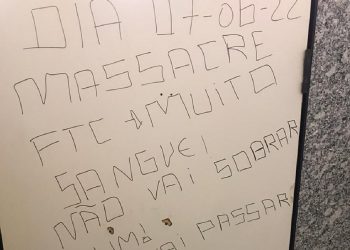 DIA 07-06-22
MASSACRE
FTC + MUITO
SANGUE!
NÃO VAI SOBRAR
VAI PASSAR